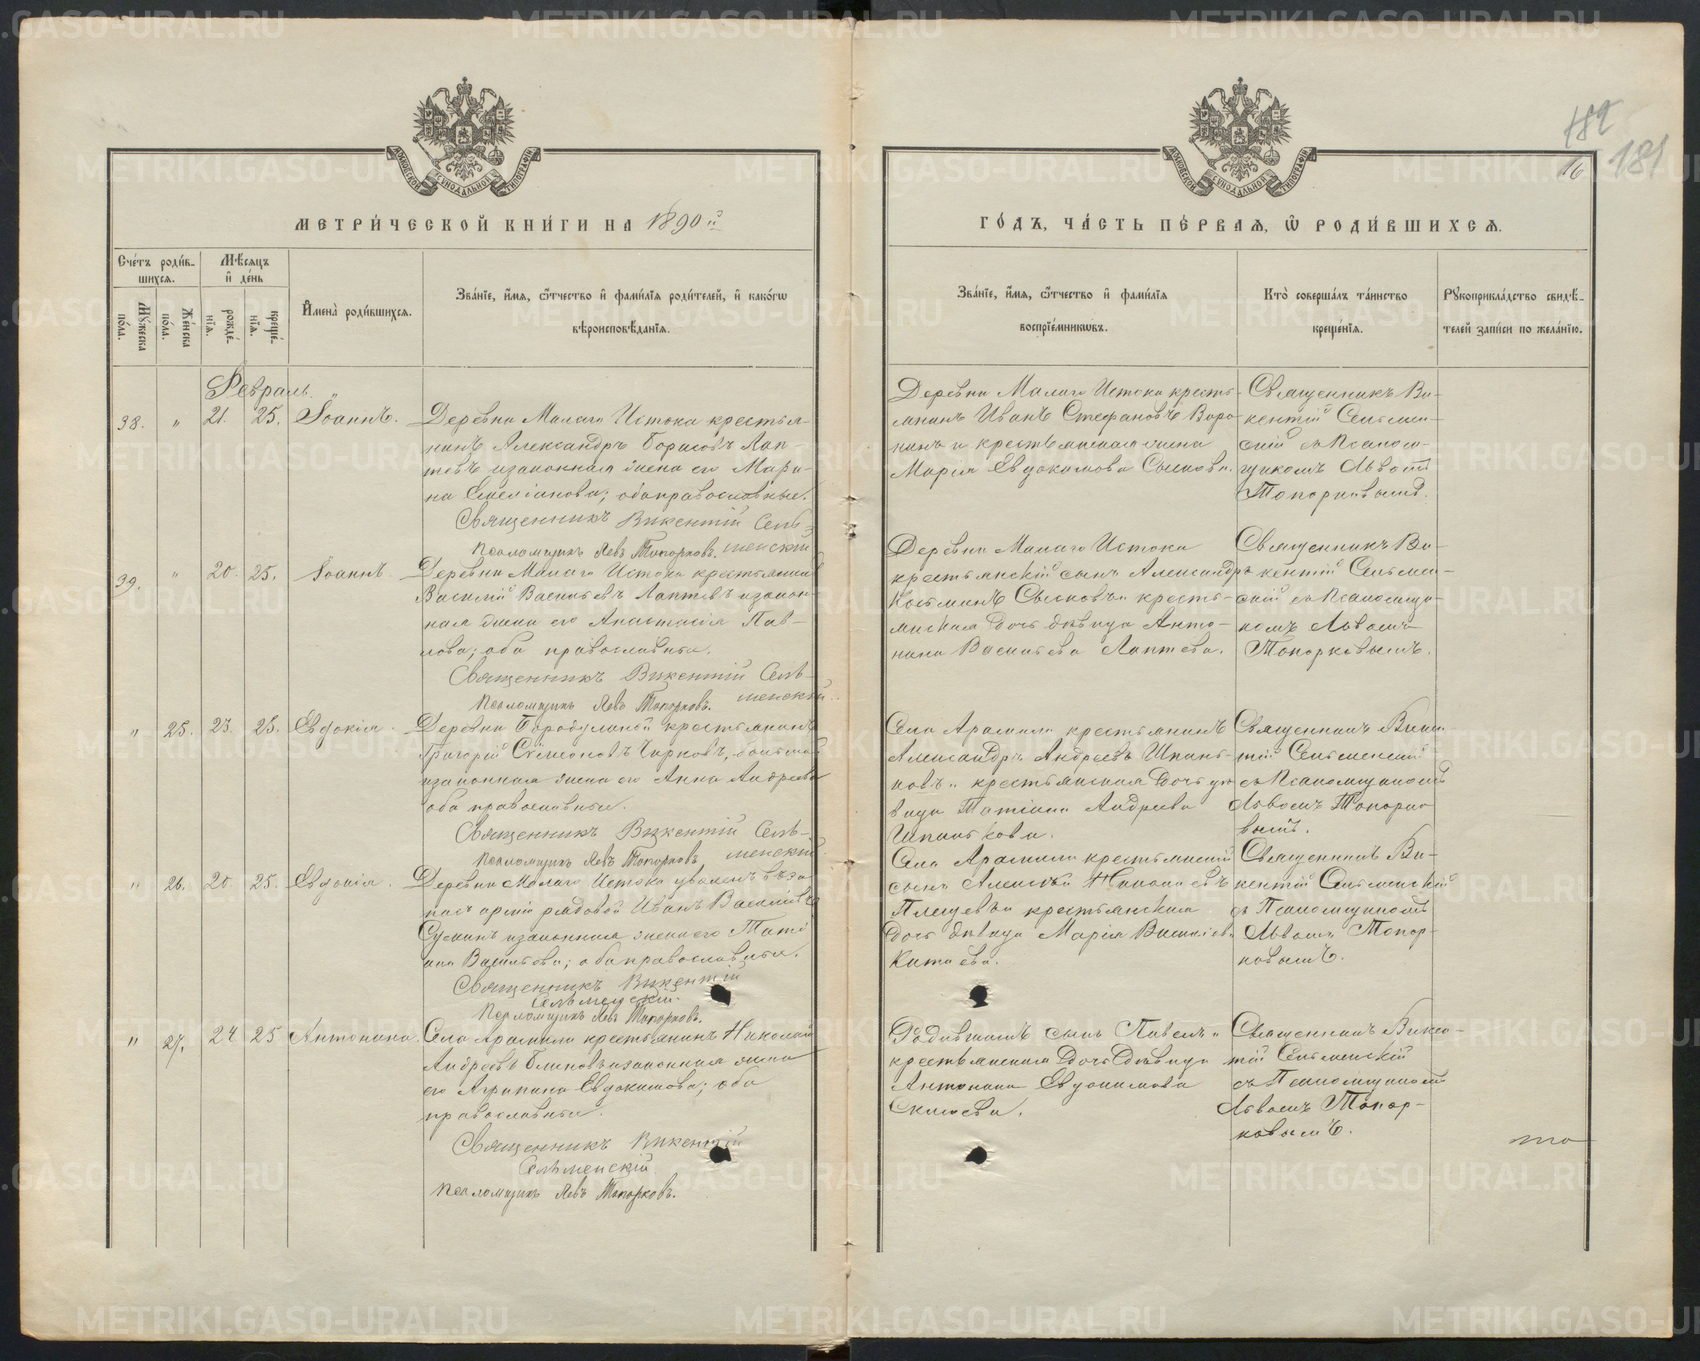 МЕТРИ́ЧЕСКОЙ КНИ́ГИ НА 1890 й
Сче́тъ роди́в-
шихся.
Мѣ́сяцъ
и҆ де́нь
Мꙋ́жеска
по́ла.
Же́нска
по́ла.
рожде́-
нїѧ.
креще́-
нїѧ.
И҆мена̀ роди́вшихсѧ.
Зва́нїе, и҆́мѧ, ѻ҆́тчество и҆ фами́лїѧ роди́телей, и҆ како́гѡ
вѣроисповѣ́данїѧ.
Февраль.
38. " 21. 25. Іоаннъ.
Деревни Малаго Истока крестья-
нинъ Александръ Борисовъ Лап-
тевъ и законная жена его Мари-
на Емелianова; оба православные.
Священникъ Викентій Сель-
менскій
Псаломщикъ Левъ Топорковъ.
39. " 20. 25. Іоаннъ
Деревни Малаго Истока крестьянинъ
Василій Васильевъ Лаптевъ и закон-
ная жена его Анастасія Пав-
лова; оба православные.
Священникъ Викентій Сель-
менскій.
Псаломщикъ Левъ Топорковъ.
" 25. 23. 25. Евдокія.
Деревни Бородулиной крестьянинъ
Григорій Сѵмеоновъ
и законная жена его Анна Андреева
оба православные.
Священникъ Викентій Сель-
менскій
Псаломщикъ Левъ Топорковъ.
" 26. 20 25. Евдокія.
Деревни Малаго Истока уволенъ въ за-
пасъ арміи рядовой Иванъ Васильевъ
и законная жена его Тати
ана Васильева; оба православные.
Священникъ Викентій
Сельменскій.
Псаломщикъ Левъ Топорковъ.
" 27. 24 25 Антонина.
Села Арамили крестьянинъ Николай
Андреевъ Блиновъ и законная жена
его Агрипина Евдокимова; оба
православные.
Священникъ Викентій
Сельменскій
Псаломщикъ Левъ Топорковъ.
182
16 181
ГО́ДЪ, ЧА́СТЬ ПЕ́РВАѦ, Ѡ҆ РОДИ́ВШИХСѦ.
Зва́нїе, и҆́мѧ, ѻ҆́тчество и҆ фами́лїѧ
воспрїе́мникѡвъ.
Кто̀ соверша́лъ та́инство
креще́нїѧ.
Рꙋкоприкла́дство свидѣ́-
телей за́писи по жела́нїю.
Деревни Малаго Истока кресть-
янинъ Иванъ Стефановъ Воро-
нинъ и крестьянская жена
Марія Евдокимова Сыскова.
Священникъ Ви-
кентій Сельмен-
скій съ Псалом-
щикомъ Львомъ
Топорковымъ.
Деревни Малаго Истока
крестьянскій сынъ Александръ
Козьминъ Сысковъ и кресть-
янская дочь дѣвица Анто-
нина Васильева Лаптева.
Священникъ Ви-
кентій Сельмен-
скій съ Псаломщи-
комъ Львомъ
Топорковымъ.
Села Арамили крестьянинъ
Александръ Андреевъ Шпань-
ковъ и крестьянская дочь дѣ-
вица Татіана Андреева
Шпанькова.
Священникъ Викен
тій Сельменскій
съ Псаломщикомъ
Львомъ Топорко
вымъ.
Села Арамили крестьянскій
сынъ Алексѣй
Плещевъ и крестьянская
дочь дѣвица Марія Василіева
Китаева.
Священникъ Ви-
кентій Сельменскій
съ Псаломщикомъ
Львомъ Топор-
ковымъ.
Родившимъ сынъ Павелъ и
крестьянская дочь дѣвица
Антонина Евдокимова
Священникъ Викен-
тій Сельменскій
съ Псаломщикомъ
Львомъ Топор-
ковымъ.